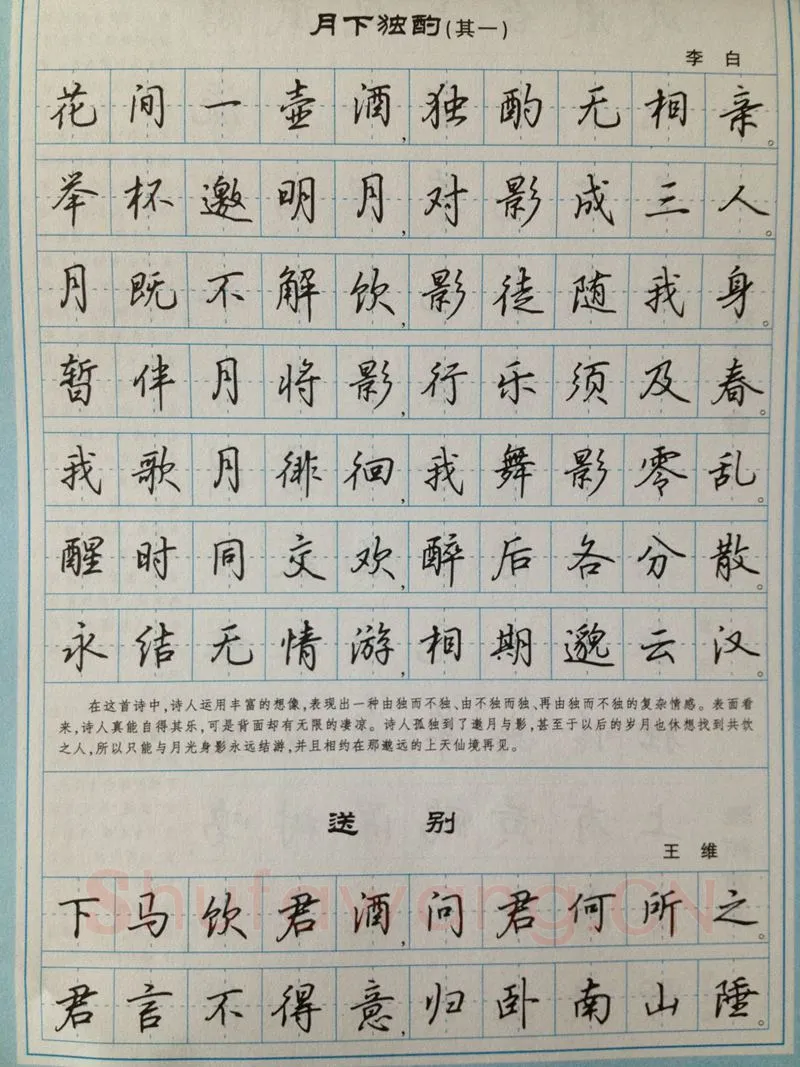 月下独酌(其一)
李白
花间一壶酒,独酌无相亲。
举杯邀明月,对影成三人。
月既不解饮,影徒随我身。
暂伴月将影,行乐须及春。
我歌月徘徊,我舞影零乱。
醒时同交欢,醉后各分散。
永结无情游,相期邈云汉。
在这首诗中,诗人运用丰富的想像,表现出一种由独而不独、由不独而独、再由独而不独的复杂情感。表面看
来,诗人真能自得其乐,可是背面却有无限的凄凉。诗人孤独到了邀月与影,甚至于以后的岁月也休想找到共饮
之人,所以只能与月光身影永远结游,并且相约在那邈远的上天仙境再见。
送别
王维
下马饮君酒,问君何所之。
君言不得意,归卧南山陲。
Shufawang.CN